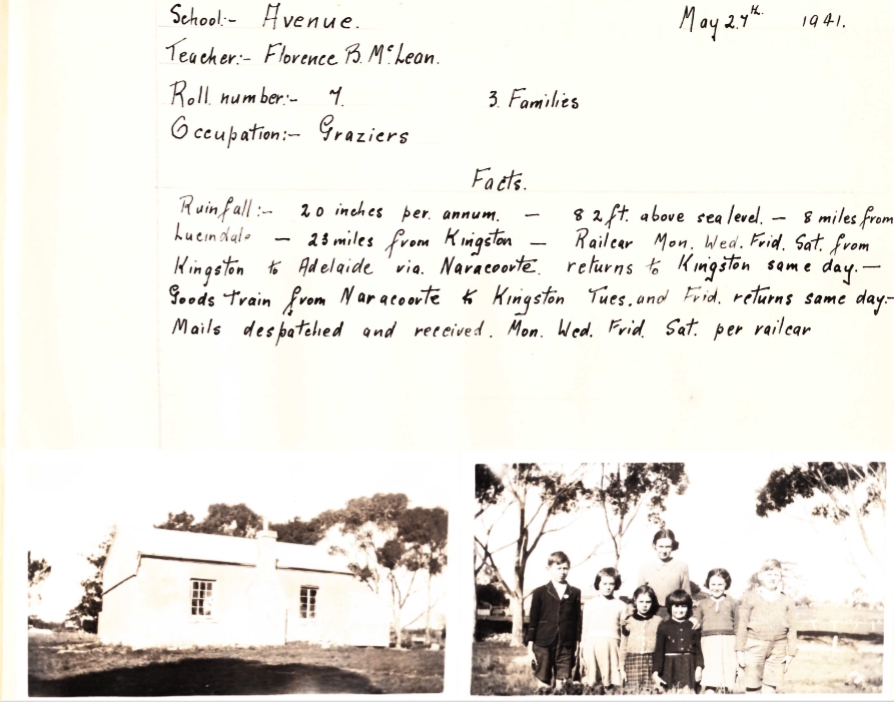 School:- Avenue. May 27th. 1941.
Teacher:- Florence B. McLean.
Roll number:- 7. 3. Families
Occupation:- Graziers
Facts.
Rainfall:- 20 inches per. annum. - 82 ft. above sea level. - 8 miles from
Lucindale - 23 miles from Kingston - Railcar Mon. Wed. Frid. Sat. from
Kingston to Adelaide via. Naracoorte. returns to Kingston same day. -
Goods train from Naracoorte to Kingston Tues. and Frid. returns same day:-
Mails despatched and received. Mon. Wed. Frid. Sat. per railcar